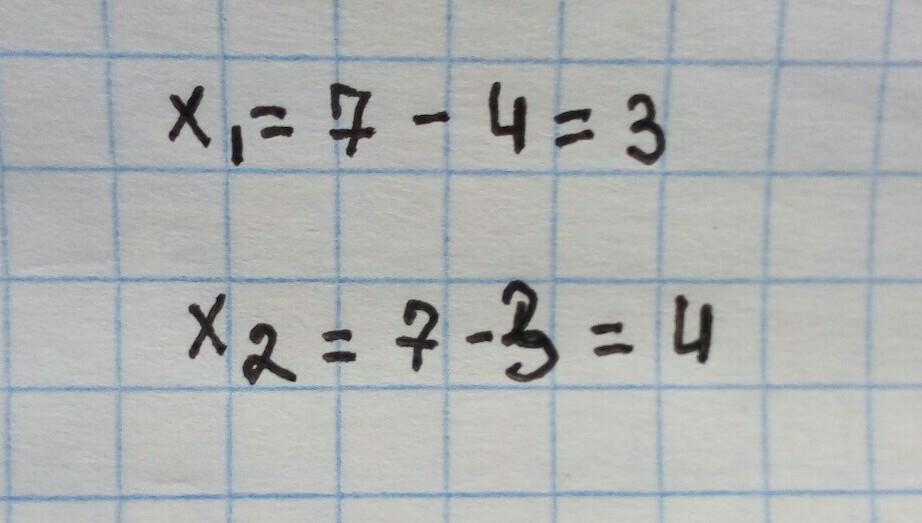 x₁ = 7 - 4 = 3
x₂ = 7 - 3 = 4